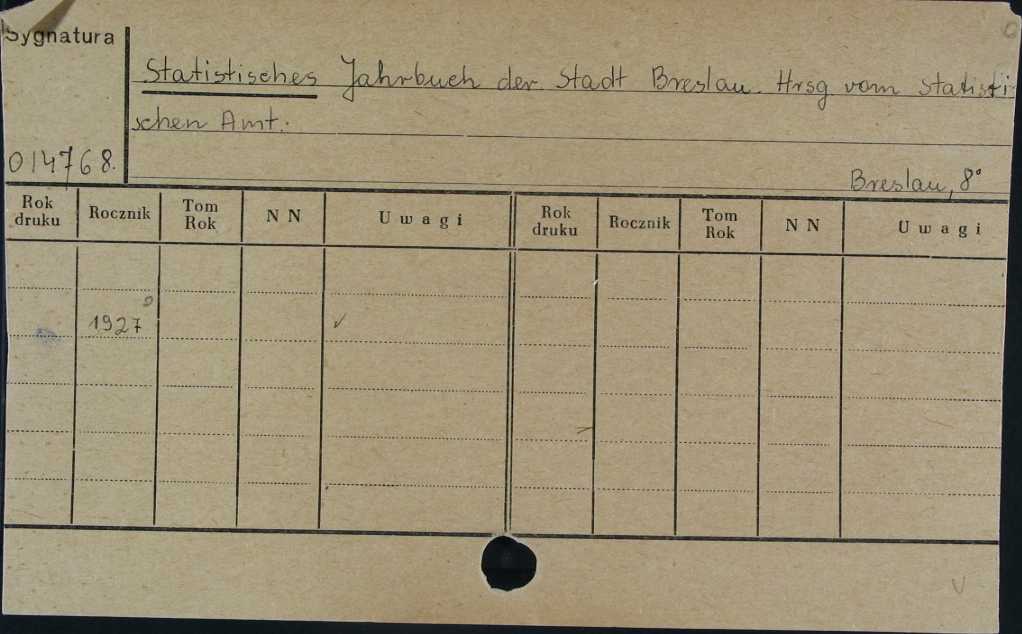 Sygnatura
Statistisches Jahrbuch der Stadt Breslau. Hrsg vom Statisti
schen Amt.
014768.
Breslau, 8°
Rok druku Rocznik Tom Rok N N Uwagi Rok druku Rocznik Tom Rok N N Uwagi
1927 ✓